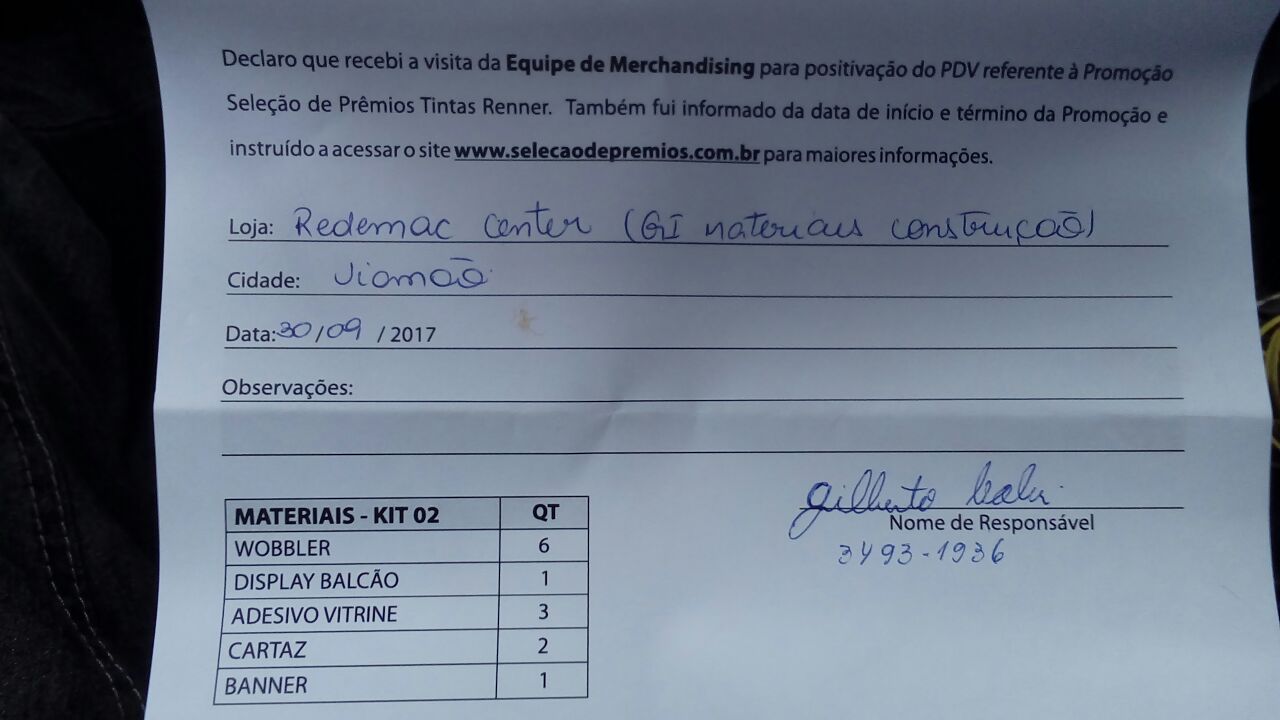 Declaro que recebi a visita da Equipe de Merchandising para positivação do PDV referente à Promoção
Seleção de Prêmios Tintas Renner. Também fui informado da data de início e término da Promoção e
instruído a acessar o site www.selecaodepremios.com.br para maiores informações.
Loja: Redemac Center (GI materiais construção)
Cidade: Viamão
Data: 30/09 / 2017
Observações:
gilberto
Nome de Responsável
3493-1936
MATERIAIS - KIT 02 QT
WOBBLER 6
DISPLAY BALCÃO 1
ADESIVO VITRINE 3
CARTAZ 2
BANNER 1